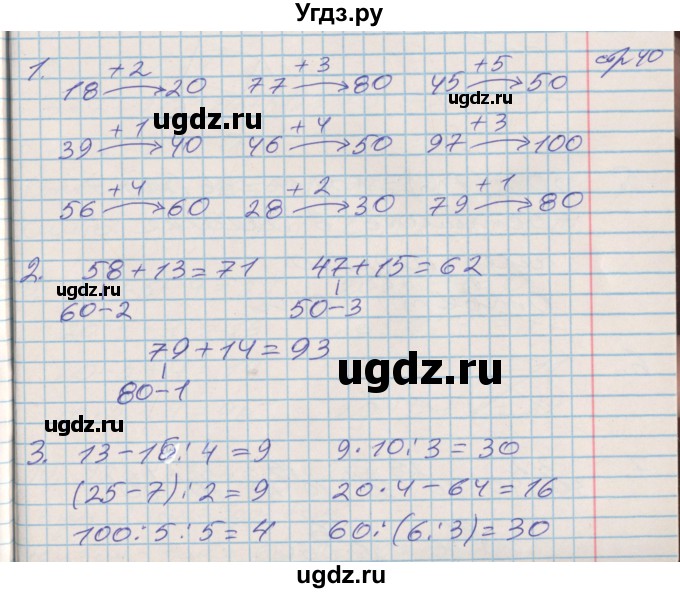 Угдз.ру
стр 40
1. 18 +2 → 20 77 +3 → 80 45 +5 → 50
ugdz.ru
ugdz.ru
39 +1 → 40 46 +4 → 50 97 +3 → 100
56 +4 → 60 28 +2 → 30 79 +1 → 80
2. 58 + 13 = 71 47 + 15 = 62
ugdz.ru
60 - 2 50 - 3
79 + 14 = 93
ugdz.ru
80 - 1
ugdz.ru
3. 13 - 16 : 4 = 9 9 · 10 : 3 = 30
(25 - 7) : 2 = 9 20 · 4 - 64 = 16
100 : 5 : 5 = 4 60 : (6 : 3) = 30
ugdz.ru